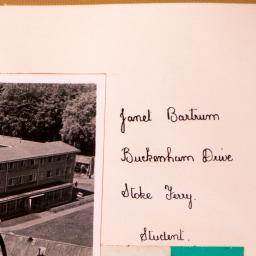 Janet Bartrum
Buckenham Drive
Stoke Ferry.
Student.